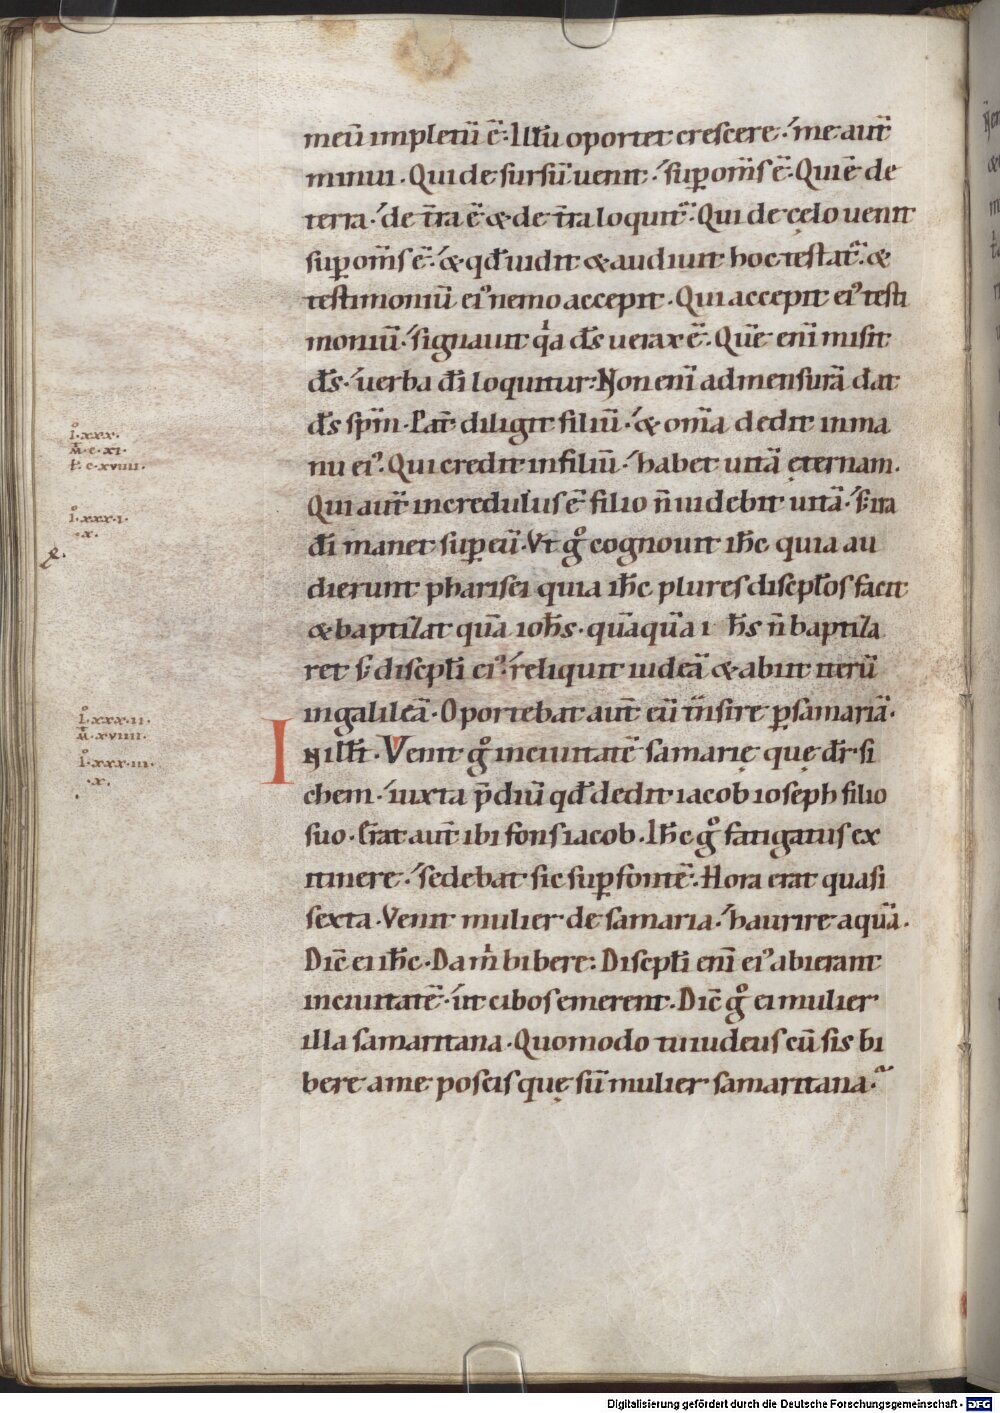 meū impletū ē. Illū oportet crescere. me aut̄
minui. Qui de sursū uenit. sup om̄s ē. Qui ē de
terra. de t̄ra ē & de t̄ra loquit̄. Qui de cęlo uenit
sup om̄s ē. & qđ uidit & audiuit hoc testat̄. &
testimoniū ei' nemo accepit. Qui accepit ei' testi
moniū. signauit qa d̄s uerax ē. Quē enī misit
d̄s. uerba dī loquitur. Non enī ad mensurā dat
d̄s sp̄m. Pat̄ diligit filiū. & om̄a dedit in ma
nu ei'. Qui credit in filiū. habet uitā ęternam.
Qui aut̄ incredulus ē filio n̄ uidebit uitā. s; ira
dī manet sup eū. Vt gͦ cognouit ih̄c quia au
dierunt pharisei quia ih̄c plures discipłos facit
& baptizat quā ioh̄s. quāquā i h̄s n̄ baptiza
ret s; discipłi ei'. reliquit iudeā & abiit iterū
in galileā. Oportebat aut̄ eū t̄nsire p samariā.
I N illī. Venit gͦ in ciuitatē samarię quę dr̄ si
chem. iuxta p̄diū qđ dedit iacob ioseph filio
suo. Erat aut̄ ibi fons iacob. Ih̄c gͦ fatigatus ex
itinere. sedebat sic sup fontē. Hora erat quasi
sexta. Venit mulier de samaria. haurire aquā.
Dic̄ ei ih̄c. Da m bibere. Discipłi enī ei' abierant
in ciuitatē. ut cibos emerent. Dic̄ gͦ ei mulier
illa samaritana. Quomodo tu iudeus cū sis bi
bere a me poscis quę sū mulier samaritana.
I. xxx.
M. c. xi.
L. c. xviiii.
I. xxx. i.
.x.
I. xxx. ii.
M. xviiii.
I. xxx. iii.
.x.
Digitalisierung gefördert durch die Deutsche Forschungsgemeinschaft - DFG